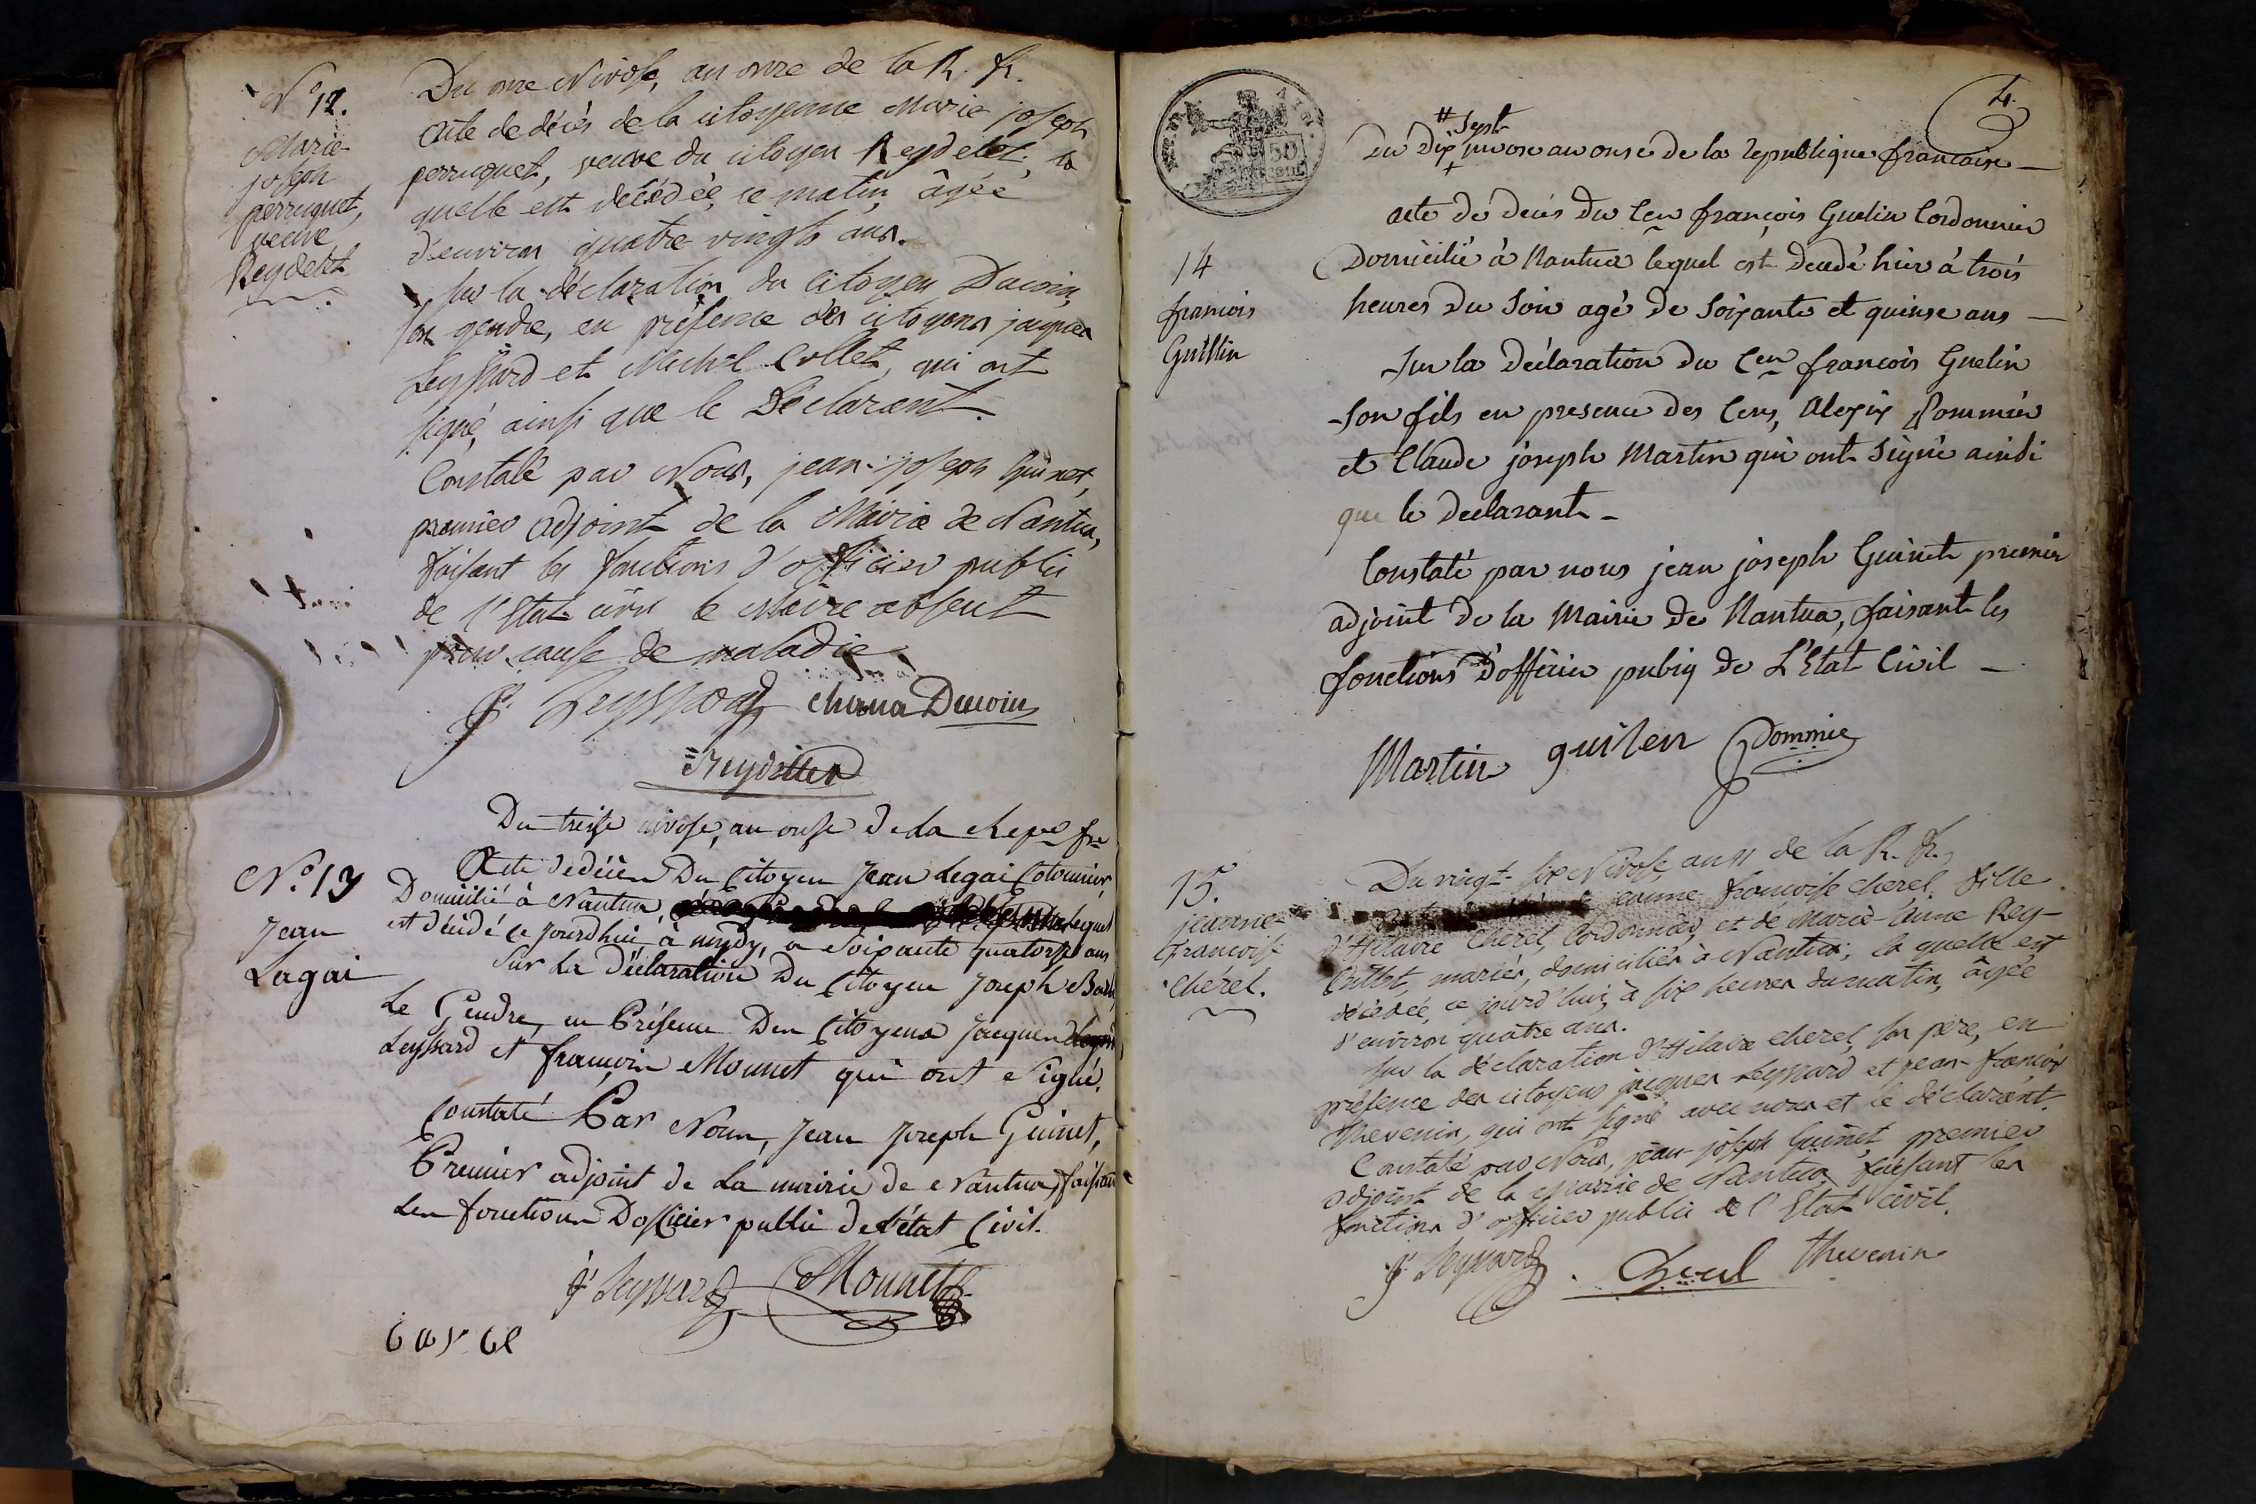 N.o 12.
Marie-
joseph
perruquet,
veuve
Reydelet
Du onze Nivose, an onze de la R. fr.
Acte de décès de la citoyenne Marie joseph
perruquet, veuve du citoyen Reydelet; la
quelle est décédée, ce matin, âgée
d'environ quatre vingts ans.
Sur la déclaration du citoyen Ducoin,
son gendre, en présence des citoyens jacques
Leyssard et Michel Collet, qui ont
signé, ainsi que le Déclarent.
Constaté par Nous, jean-joseph Guinet,
premier adjoint de la Mairie de Nantua,
faisant les fonctions d'officier public
de l'Etat civil le Maire absent
pour cause de maladie
J. Leyssard Ducoin
N.o 13
Jean
Lagai
Du treise nivose, an onse de la Repe fre
Acte de décès Du Citoyen Jean Legai Cotonnier
Domicilié à Nantua, lequel
est décédé ce jourdhui à midy, a Soixante quatorse ans
Sur La Déclaration Du Citoyen Joseph
Le Gendre, en Présence Des Citoyens Jacques
Leyssard et françois Monnet qui ont Signé.
Constaté Par Nous, Jean Joseph Guinet,
Premier adjoint de La mairie de Nantua, faisant
Les fonctions Dofficier public de L'état Civil.
J. Leyssard Monnet
4.
Sept
Du Dix nivose an onse de la republique francaise —
14
francois
Guillin
acte de deces du Cen françois Guelin Cordonnier
Domicilié à Nantua lequel est decedé hier à trois
heures du Soir agé de Soixante et quinse ans —
Sur la Déclaration du Cen francois Guelin
Son fils en presence des Cens, Alexix Dommier
et Claude joseph Martin qui ont Signé ainsi
que le declarant —
Constaté par nous jean joseph Guinet premier
adjoint de la Mairie de Nantua, faisant les
fonctions d'officier pubiq de L'Etat Civil —
Martin guilen Dommie
15.
jeanne-
Francoise
Chérel.
Du vingt-six Nivose, an 11 de la R. fr.
jeanne francoise Cherel, fille
d'Hilaire Cherel, Cordonnier, et de Marie-Anne Rey-
Cullet, mariés, domiciliés à Nantua; la quelle est
décédée, ce jourd'hui, à six heures du matin, âgée
d'environ quatre ans.
Sur la déclaration d'Hilaire Cherel, son pere, en
présence des citoyens jacques Leyssard et jean-françois
Thevenin, qui ont signé avec nous et le déclarant.
Constaté par Nous, jean-joseph Guinet, premier
adjoint de la Mairie de Nantua, faisant les
fonctions d'officier public de l'Etat civil.
J. Leyssard Cherel Thevenin